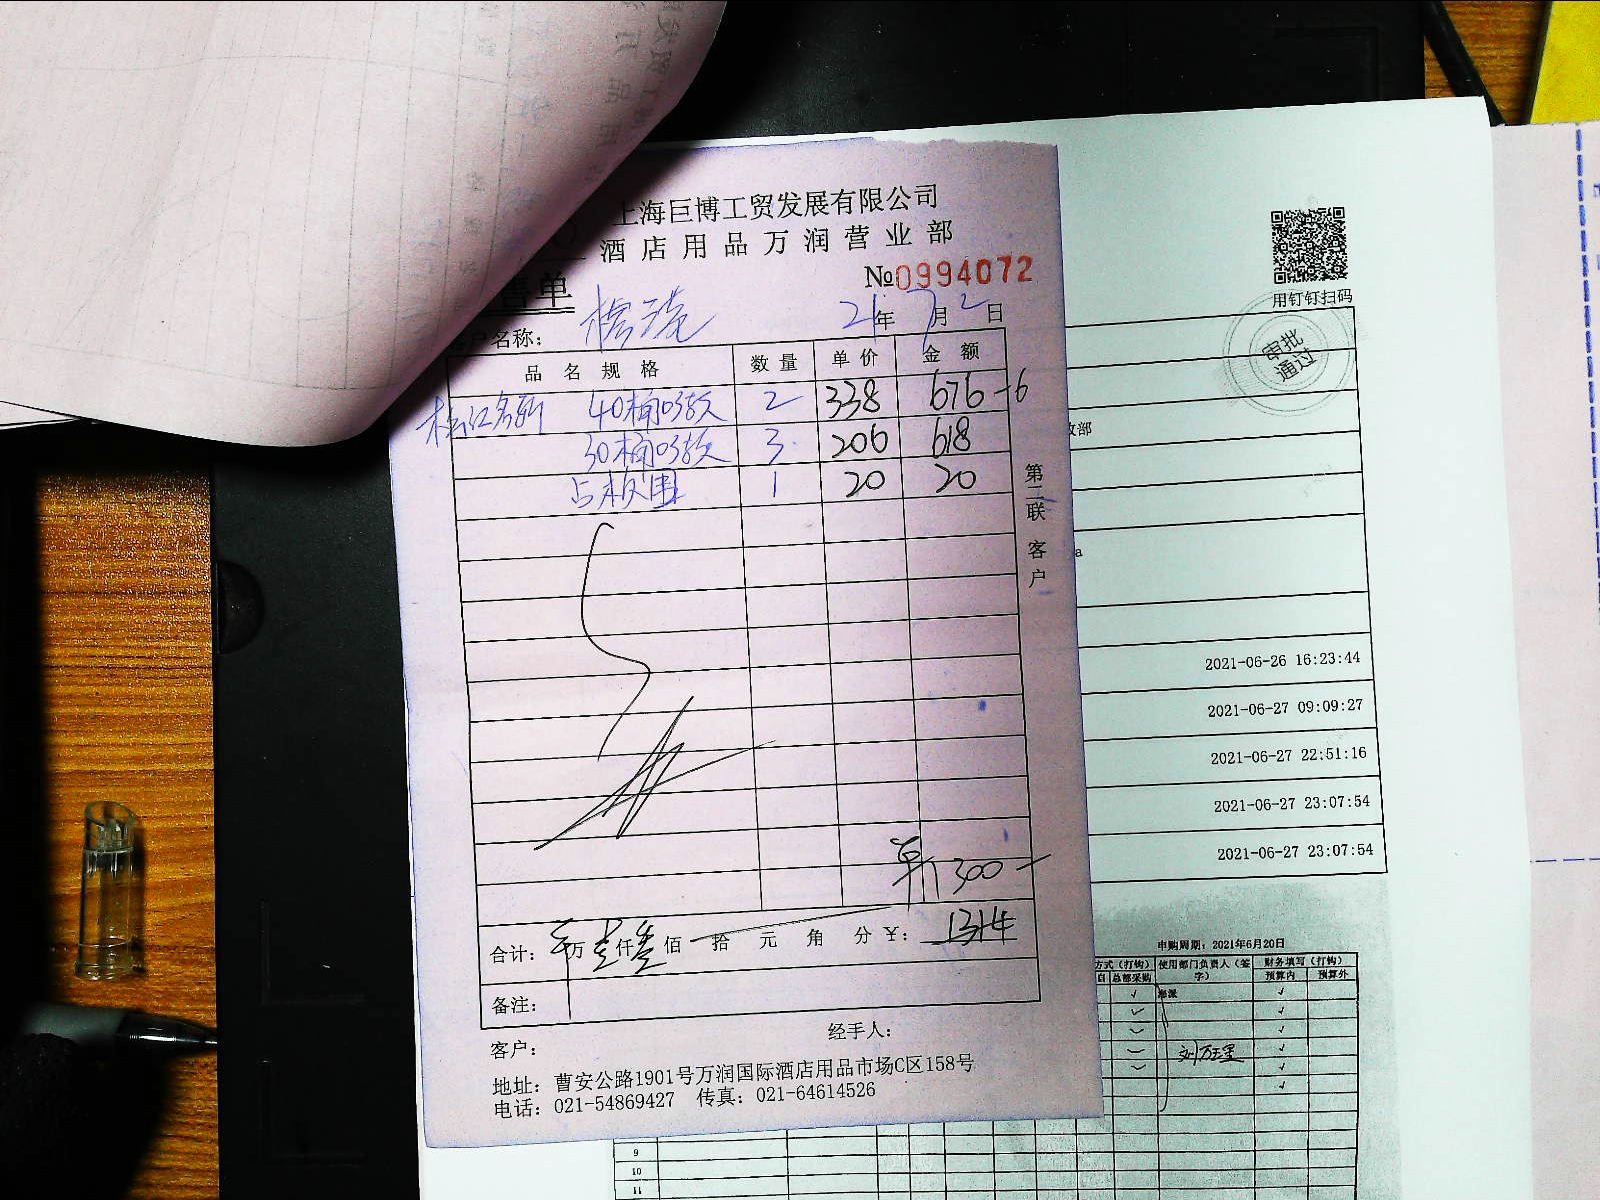 上海巨博工贸发展有限公司
酒店用品万润营业部
售单
№0994072
户名称：
21年7月2日
品名规格 数量 单价 金额
40桶 2 338 676 -6
30桶 3 206 618
1 20 20
300
合计： 万壹仟叁佰 拾 元 角 分 ￥： 1314
备注：
客户： 经手人：
地址：曹安公路1901号万润国际酒店用品市场C区158号
电话：021-54869427 传真：021-64614526
第二联 客户
用钉钉扫码
审批通过
政部
a
2021-06-26 16:23:44
2021-06-27 09:09:27
2021-06-27 22:51:16
2021-06-27 23:07:54
2021-06-27 23:07:54
申购周期：2021年6月20日
方式（打钩） 使用部门负责人（签字） 财务填写（打钩）
自 总部采购 预算内 预算外
9
10
11